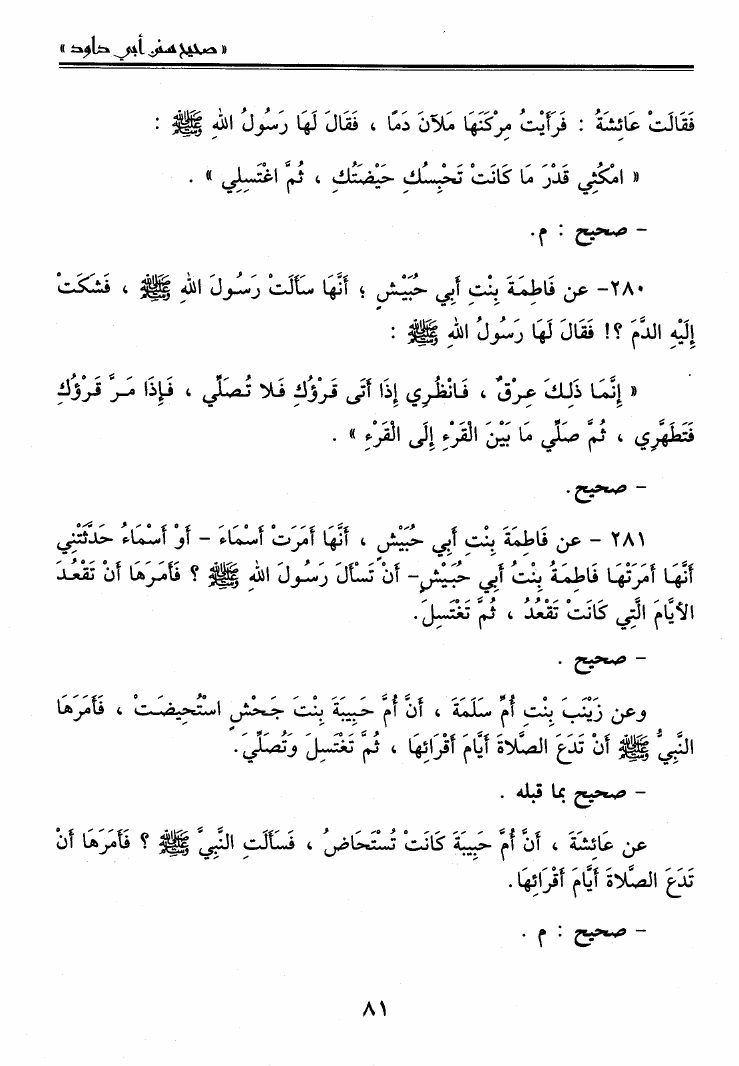 « صحيح سنن أبي داود »
فَقَالَتْ عَائِشَةُ : فَرَأَيْتُ مِرْكَنَهَا مَلآنَ دَمًا ، فَقَالَ لَهَا رَسُولُ اللهِ ﷺ :
« امْكُثِي قَدْرَ مَا كَانَتْ تَحْبِسُكِ حَيْضَتُكِ ، ثُمَّ اغْتَسِلِي » .
- صحيح : م.
٢٨٠- عن فَاطِمَةَ بِنْتِ أَبِي حُبَيْشٍ ؛ أَنَّهَا سَأَلَتْ رَسُولَ اللهِ ﷺ ، فَشَكَتْ
إِلَيْهِ الدَّمَ ؟! فَقَالَ لَهَا رَسُولُ اللهِ ﷺ :
« إِنَّمَا ذَلِكَ عِرْقٌ ، فَانْظُرِي إِذَا أَتَى قَرْؤُكِ فَلا تُصَلِّي ، فَإِذَا مَرَّ قَرْؤُكِ
فَتَطَهَّرِي ، ثُمَّ صَلِّي مَا بَيْنَ القَرْءِ إِلَى الْقَرْءِ » .
- صحيح.
٢٨١ - عن فَاطِمَةَ بِنْتِ أَبِي حُبَيْشٍ ، أَنَّهَا أَمَرَتْ أَسْمَاءَ - أَوْ أَسْمَاءُ حَدَّثَتْنِي
أَنَّهَا أَمَرَتْهَا فَاطِمَةُ بِنْتُ أَبِي حُبَيْشٍ- أَنْ تَسْأَلَ رَسُولَ اللهِ ﷺ ؟ فَأَمَرَهَا أَنْ تَقْعُدَ
الأَيَّامَ الَّتِي كَانَتْ تَقْعُدُ ، ثُمَّ تَغْتَسِلَ.
- صحيح .
وعن زَيْنَبَ بِنْتِ أُمِّ سَلَمَةَ ، أَنَّ أُمَّ حَبِيبَةَ بِنْتَ جَحْشٍ اسْتُحِيضَتْ ، فَأَمَرَهَا
النَّبِيُّ ﷺ أَنْ تَدَعَ الصَّلاةَ أَيَّامَ أَقْرَائِهَا ، ثُمَّ تَغْتَسِلَ وَتُصَلِّيَ.
- صحيح بما قبله .
عن عَائِشَةَ ، أَنَّ أُمَّ حَبِيبَةَ كَانَتْ تُسْتَحَاضُ ، فَسَأَلَتِ النَّبِيَّ ﷺ ؟ فَأَمَرَهَا أَنْ
تَدَعَ الصَّلاةَ أَيَّامَ أَقْرَائِهَا.
- صحيح : م .
٨١